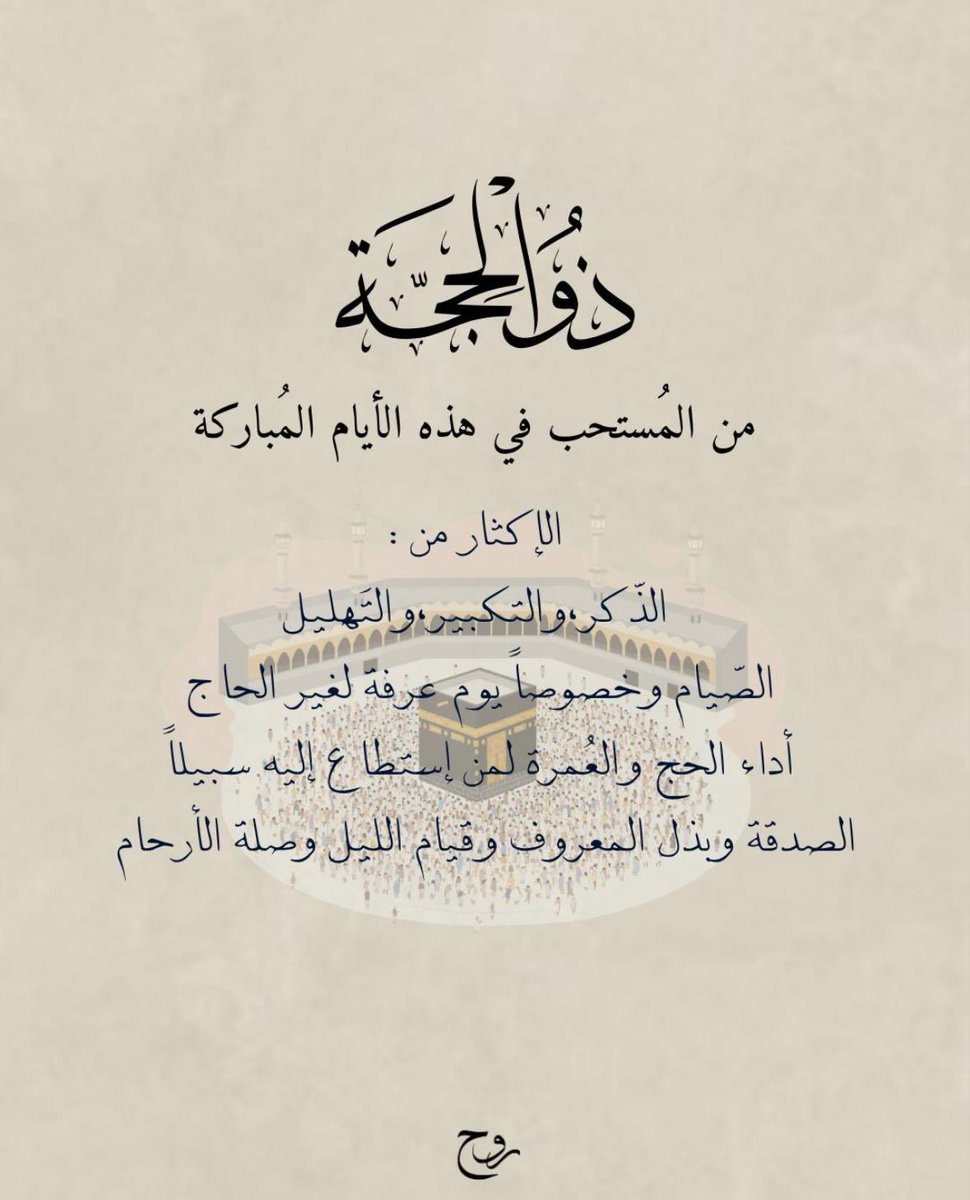 ذُوَالحِجَّة
من المُستحب في هذه الأيام المُباركة
الإكثار من :
الذّكر،والتكبير،والتَهليل
الصّيام وخصوصاً يوم عرفة لغير الحاج
أداء الحج والعُمرة لمن إستطاع إليه سبيلاً
الصدقة وبذل المعروف وقيام الليل وصلة الأرحام
روح